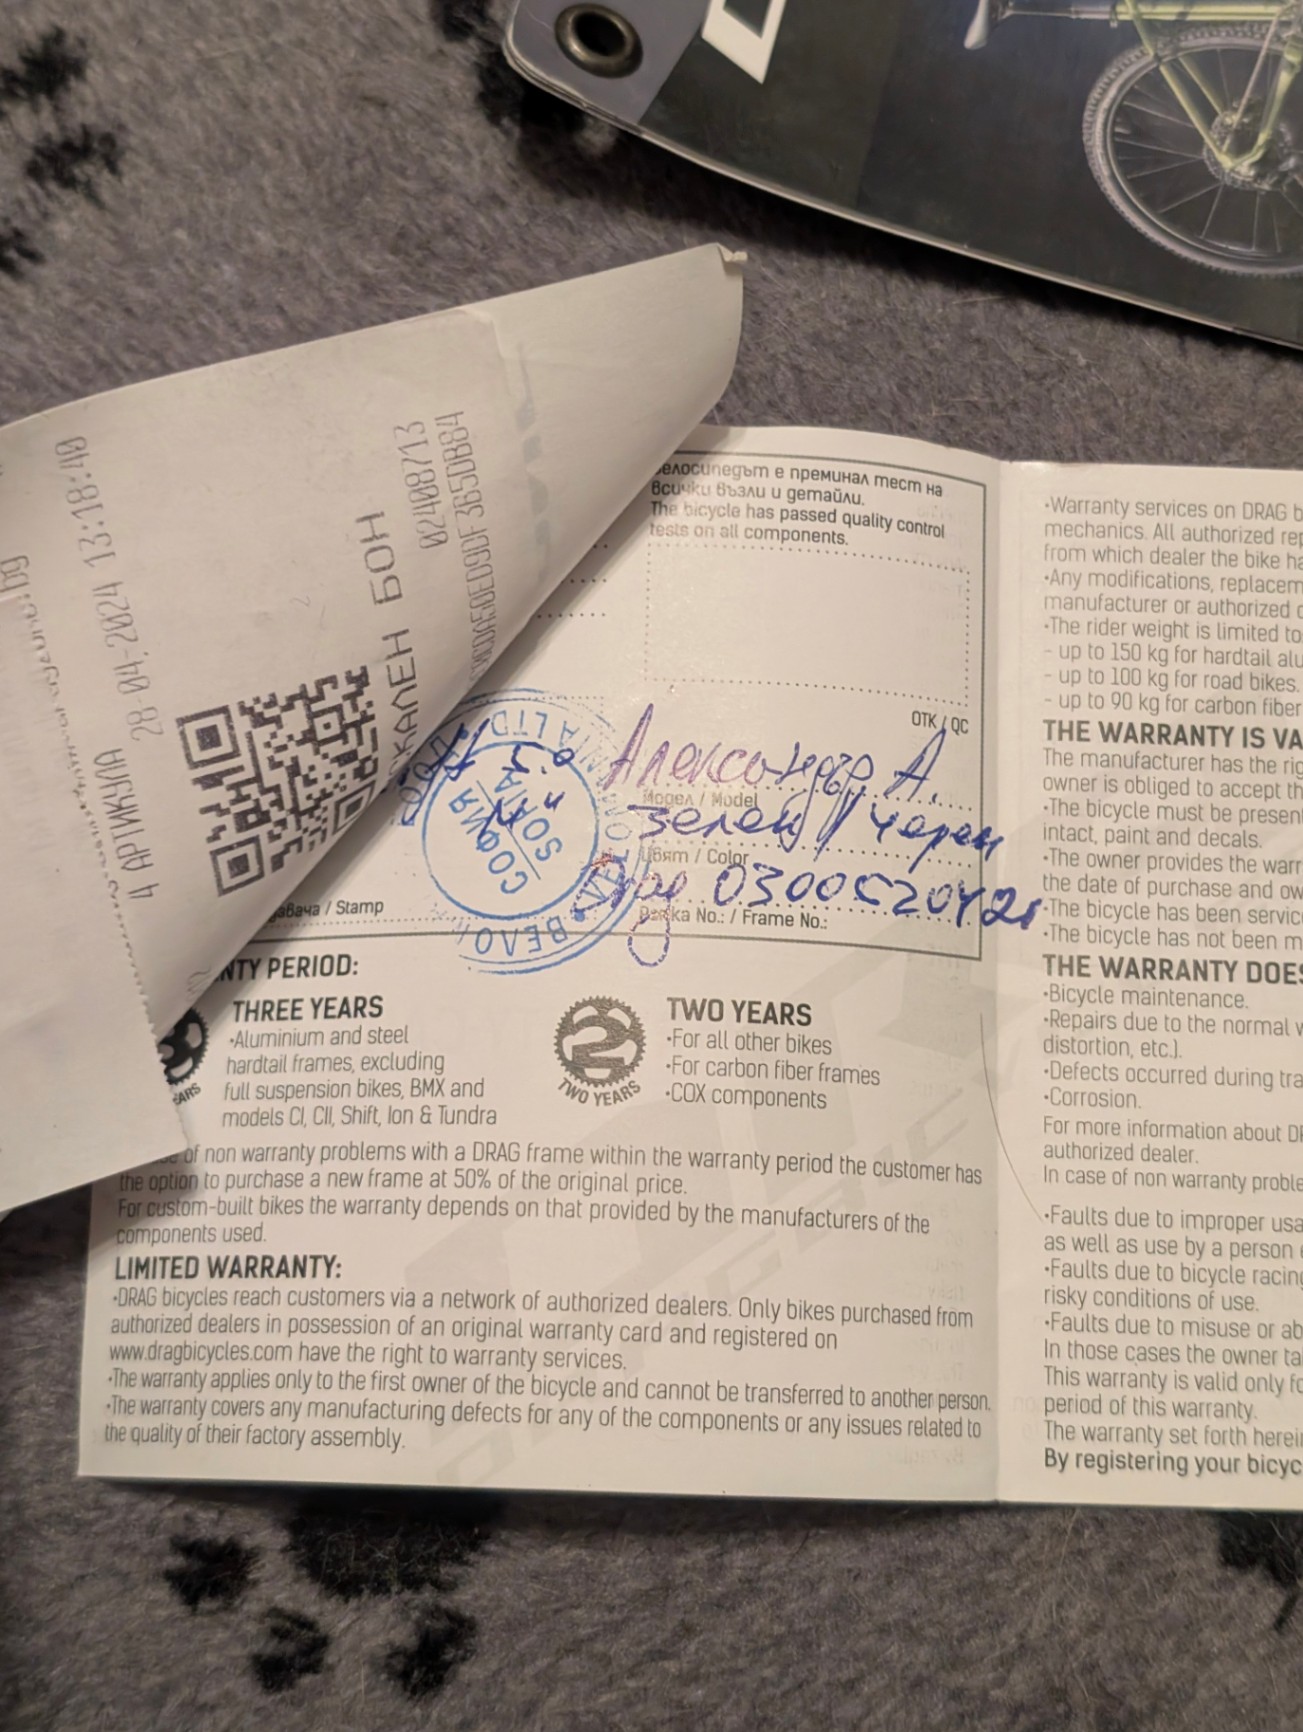 4 АРТИКУЛА
28-04-2024 13:18:40
ФИСКАЛЕН БОН
02408713
Велосипедът е преминал тест на
всички възли и детайли.
The bicycle has passed quality control
tests on all components.
ОТК / QC
Александър А.
Модел / Model
зелен / черен
Цвят / Color
Рамка No.: / Frame No.:
СОФИЯ
SOFIA
/ Stamp
PERIOD:
THREE YEARS
•Aluminium and steel
hardtail frames, excluding
full suspension bikes, BMX and
models CI, CII, Shift, Ion & Tundra
2
TWO YEARS
TWO YEARS
•For all other bikes
•For carbon fiber frames
•COX components
of non warranty problems with a DRAG frame within the warranty period the customer has
the option to purchase a new frame at 50% of the original price.
For custom-built bikes the warranty depends on that provided by the manufacturers of the
components used.
LIMITED WARRANTY:
•DRAG bicycles reach customers via a network of authorized dealers. Only bikes purchased from
authorized dealers in possession of an original warranty card and registered on
www.dragbicycles.com have the right to warranty services.
•The warranty applies only to the first owner of the bicycle and cannot be transferred to another person.
•The warranty covers any manufacturing defects for any of the components or any issues related to
the quality of their factory assembly.
•Warranty services on DRAG b
mechanics. All authorized rep
from which dealer the bike ha
•Any modifications, replacem
manufacturer or authorized d
•The rider weight is limited to
- up to 150 kg for hardtail alu
- up to 100 kg for road bikes.
- up to 90 kg for carbon fiber
THE WARRANTY IS VA
The manufacturer has the rig
owner is obliged to accept th
•The bicycle must be presen
intact, paint and decals.
•The owner provides the warr
the date of purchase and ow
•The bicycle has been servic
•The bicycle has not been m
THE WARRANTY DOES
•Bicycle maintenance.
•Repairs due to the normal w
distortion, etc.).
•Defects occurred during tra
•Corrosion.
For more information about DR
authorized dealer.
In case of non warranty proble
•Faults due to improper usa
as well as use by a person
•Faults due to bicycle racing
risky conditions of use.
•Faults due to misuse or ab
In those cases the owner ta
This warranty is valid only fo
period of this warranty.
The warranty set forth herein
By registering your bicyc